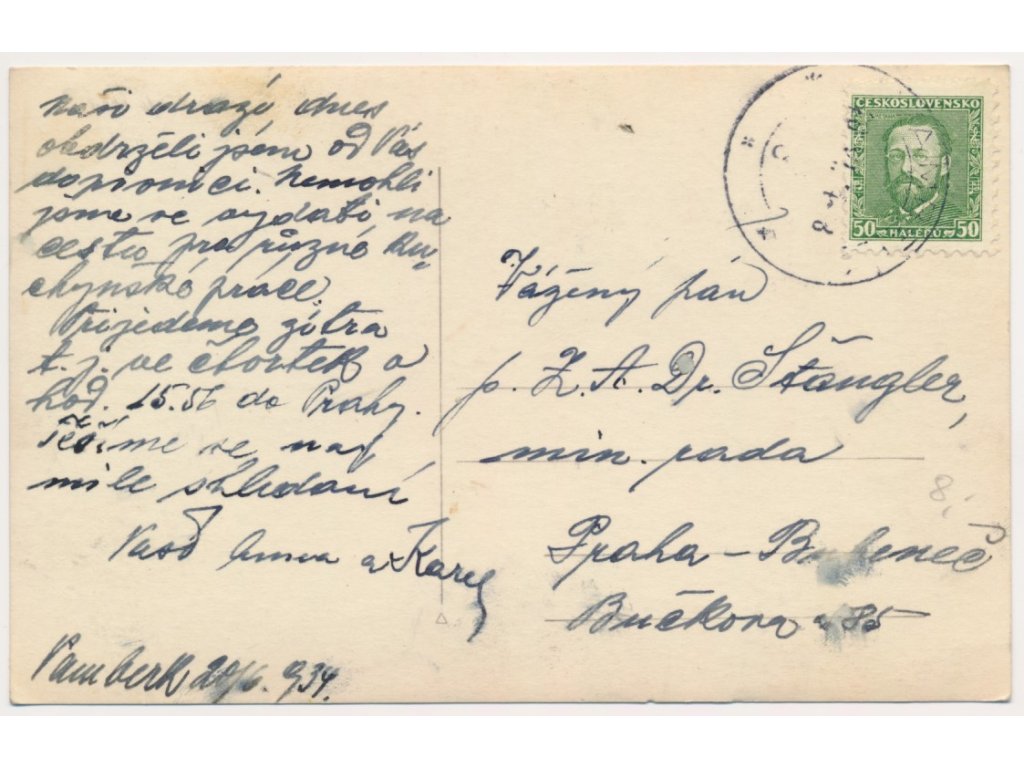 naši drazí, dnes
obdrželi jsme od Vás
dopisnici. Nemohli
jsme se vydati na
cestu pro různé ku-
chyňské práce.
Přijedeme zítra
t. j. ve čtvrtek o
hod. 15.56 do Prahy.
Těšíme se na
milé shledání
Vaši a Karel
Vamberk 20/6. 934.
ČESKOSLOVENSKO
50 HALÉŘŮ 50
Vážený pán
p. Z. A. Dr. Štangler,
min. rada
Praha – Bubeneč
Bučkova 85
8,